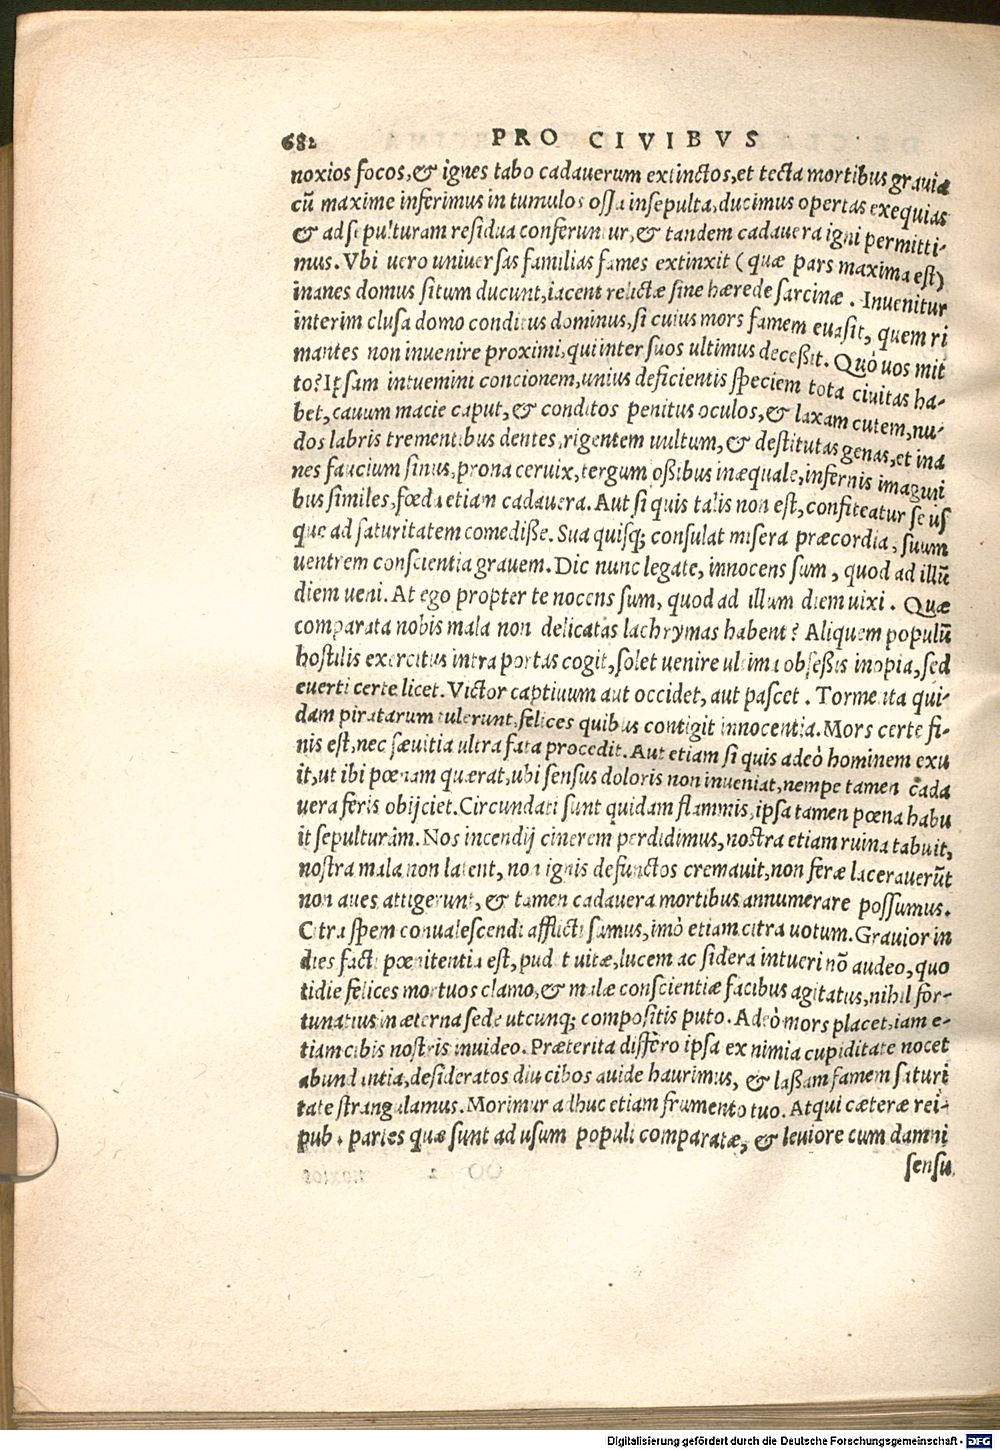 682 PRO CIVIBVS
noxios focos, & ignes tabo cadauerum extinctos, et tecta mortibus grauia
cũ maxime inferimus in tumulos ossa insepulta, ducimus opertas exequias
& ad sepulturam residua conferuntur, & tandem cadauera igni permitti-
mus. Vbi uero uniuersas familias fames extinxit (quæ pars maxima est)
inanes domus situm ducunt, iacent relictæ sine hærede sarcinæ. Inuenitur
interim clusa domo conditus dominus, si cuius mors famem euasit, quem ri
mantes non inuenire proximi, qui inter suos ultimus deceßit. Quò uos mit
to? Ipsam intuemini concionem, unius deficientis speciem tota ciuitas ha-
bet, cauum macie caput, & conditos penitus oculos, & laxam cutem, nu-
dos labris trementibus dentes, rigentem uultum, & destitutas genas, et ina
nes faucium sinus, prona ceruix, tergum oßibus inæquale, infernis imagini
bus similes, fœda etiam cadauera. Aut si quis talis non est, confiteatur se us
que ad saturitatem comediße. Sua quisq; consulat misera præcordia, suum
uentrem conscientia grauem. Dic nunc legate, innocens sum, quod ad illũ
diem ueni. At ego propter te nocens sum, quod ad illum diem uixi. Quæ
comparata nobis mala non delicatas lachrymas habent? Aliquem populũ
hostilis exercitus intra portas cogit, solet uenire ultima obseßis inopia, sed
euerti certe licet. Victor captiuum aut occidet, aut pascet. Tormenta qui-
dam piratarum tulerunt, felices quibus contigit innocentia. Mors certe fi-
nis est, nec sæuitia ultra fata procedit. Aut etiam si quis adeò hominem exu
it, ut ibi pœnam quærat, ubi sensus doloris non inueniat, nempe tamen cada
uera feris obijciet. Circundati sunt quidam flammis, ipsa tamen pœna habu
it sepulturam. Nos incendij cinerem perdidimus, nostra etiam ruina tabuit,
nostra mala non latent, non ignis defunctos cremauit, non feræ lacerauerũt
non aues attigerunt, & tamen cadauera mortibus annumerare possumus.
Citra spem conualescendi afflicti sumus, imò etiam citra uotum. Grauior in
dies facti pœnitentia est, pud t uitæ, lucem ac sidera intueri nõ audeo, quo
tidie felices mortuos clamo, & malæ conscientiæ facibus agitatus, nihil for-
tunatius in æterna sede utcunq; compositis puto. Adeò mors placet, iam e-
tiam cibis nostris inuideo. Præterita differo ipsa ex nimia cupiditate nocet
abundantia, desideratos diu cibos auide haurimus, & laßam famem saturi
tate strangulamus. Morimur adhuc etiam frumento tuo. Atqui cæteræ rei-
pub. partes quæ sunt ad usum populi comparatæ, & leuiore cum damni
sensu
Digitalisierung gefördert durch die Deutsche Forschungsgemeinschaft - DFG